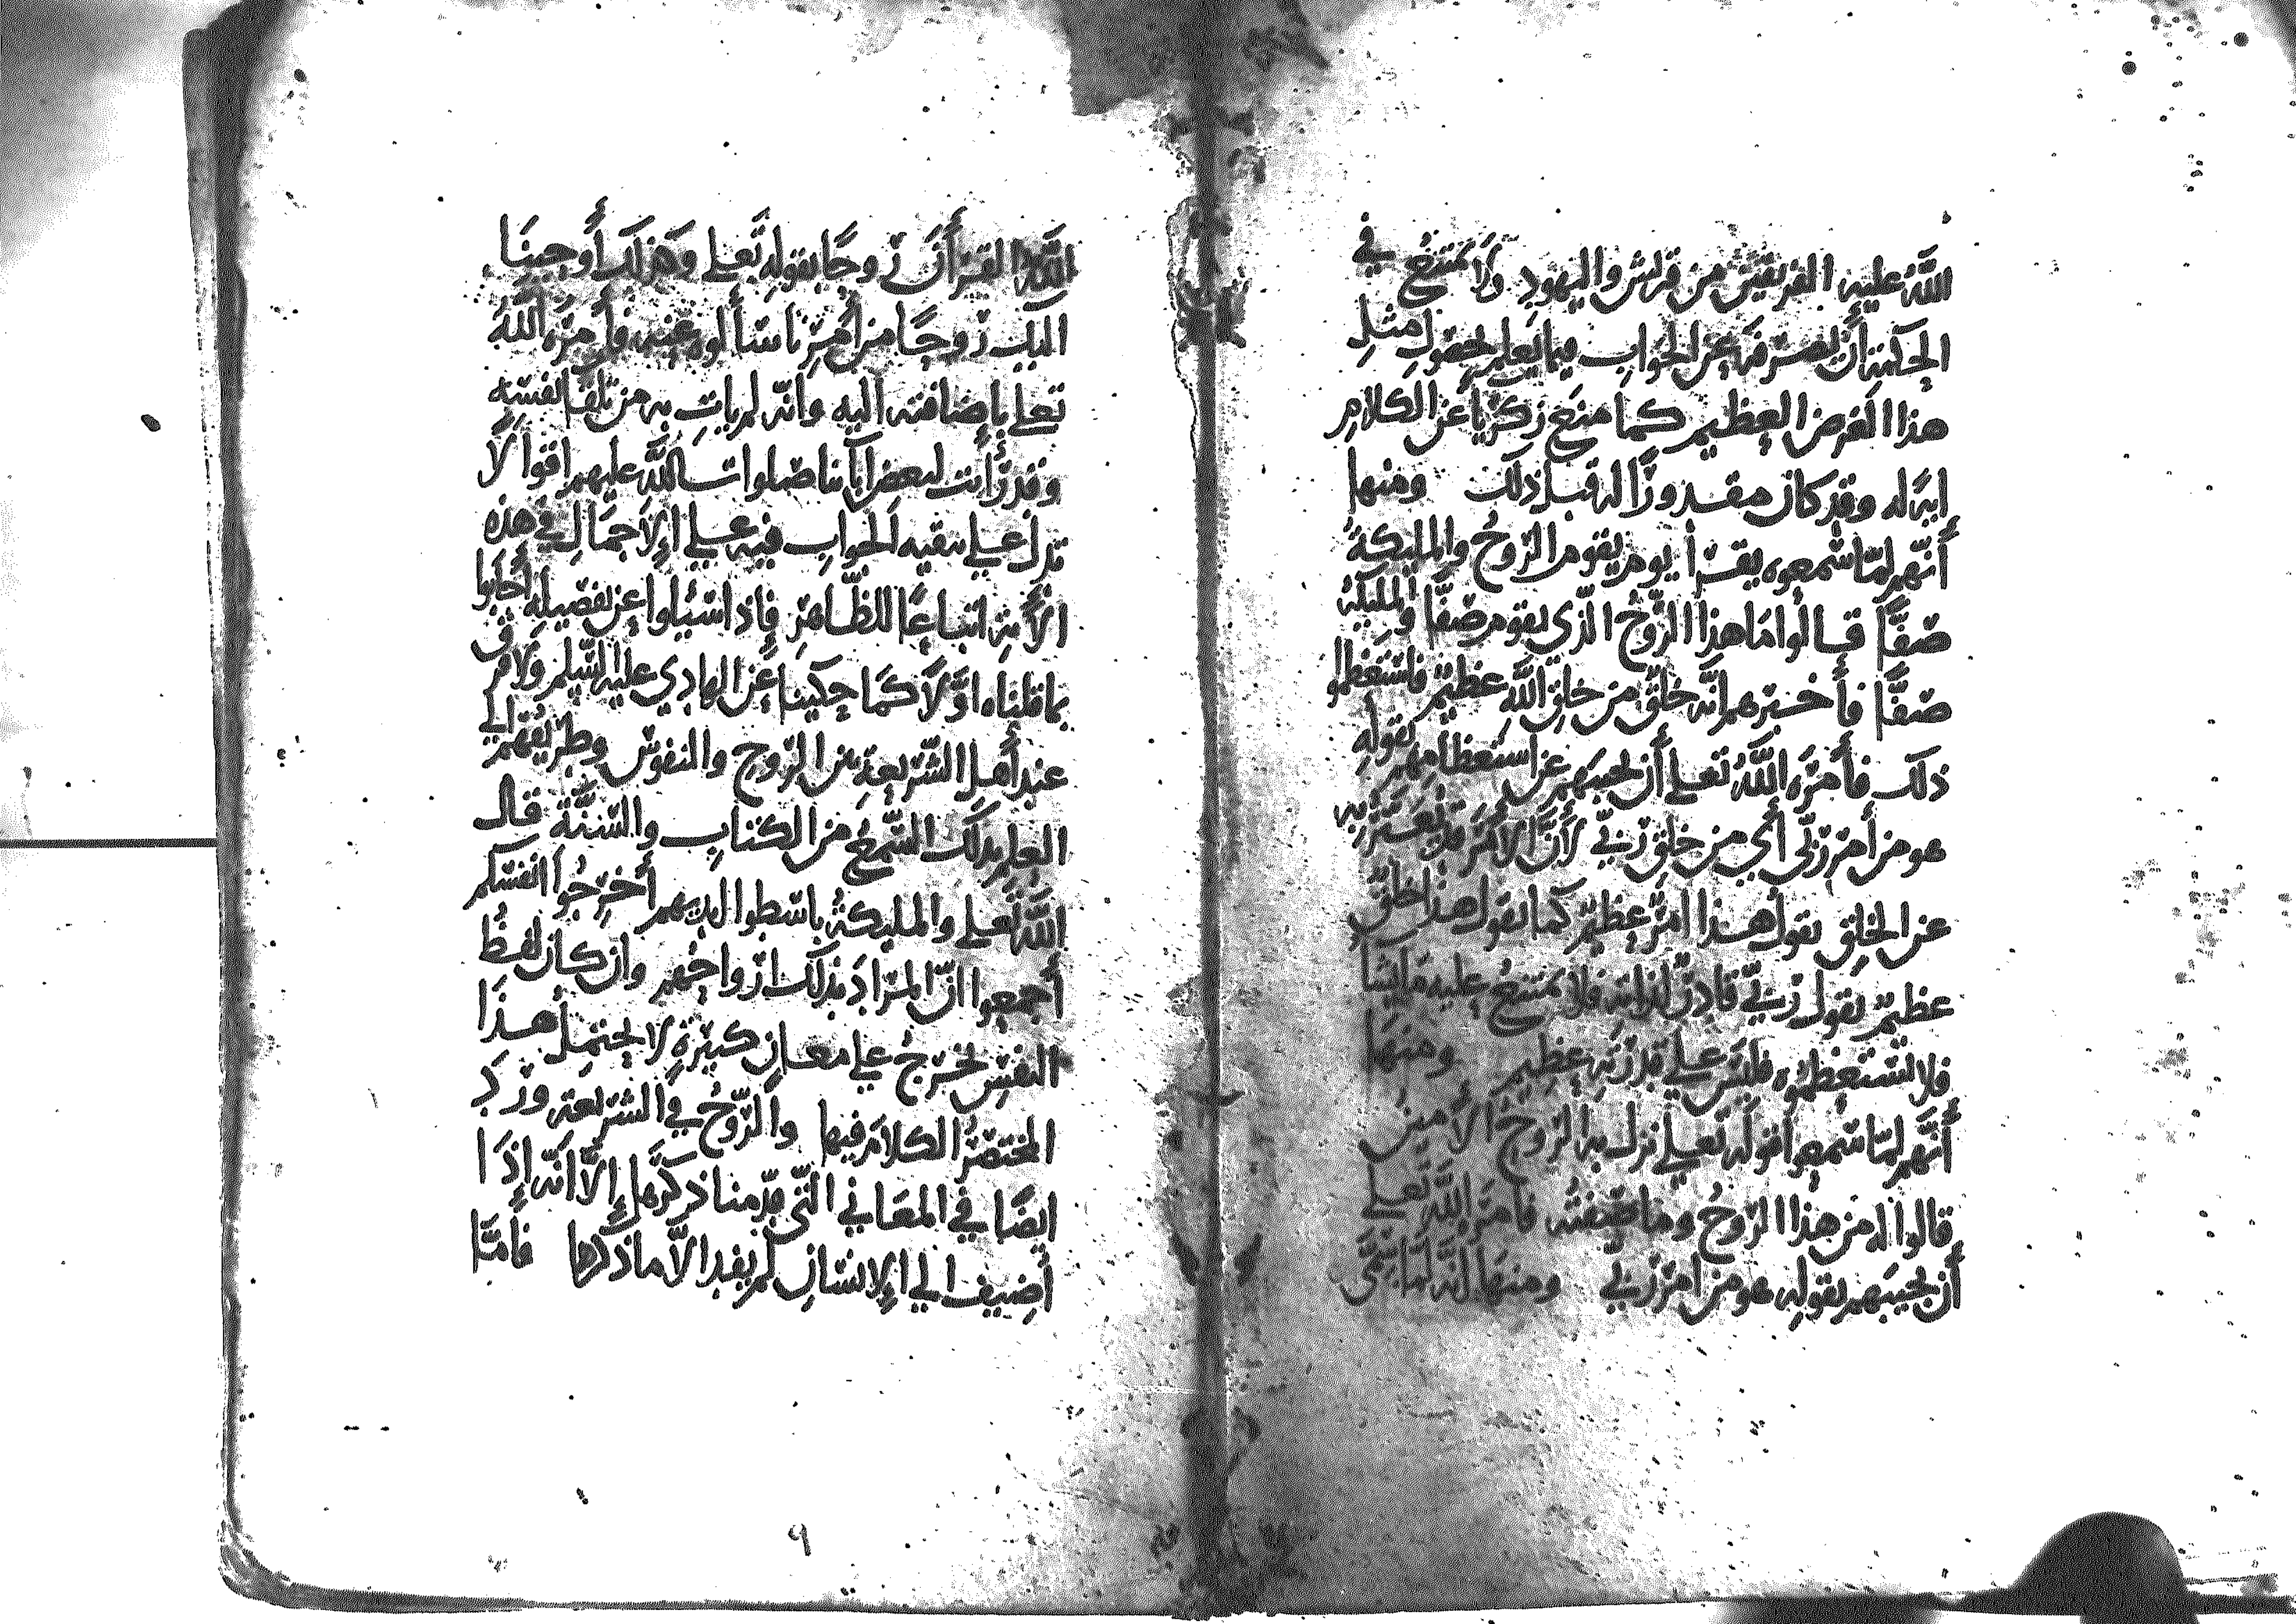 الله عليه الفريقين من قريش واليهود ولا يمتنع في
الحكمة أن يصرفه عن الجواب فيما يعلم لحصول مثل
هذا الغرض العظيم كما منع زكريا عن الكلام
ابرا له وقد كان مقدورا له قبل ذلك ومنها
أنهم لما سمعوه يقرأ يوم يقوم الروح والمليكة
صفا قالوا ما هذا الروح الذي يقوم صفا والمليكة
صفا فأخبرهم انه خلق من خلق الله عظيم فاستعظموا
ذلك فأمره الله تعلى أن يجيبهم عن استعظامهم بقوله
هو من أمر ربي أي من خلق ربي لأن الأمر قد يعبر به
عن الخلق يقول هذا امر عظيم كما يقول هذا خلق
عظيم يقول ربي قادر لذاته فلا يمتنع عليه ما يشا
فلا تستعظموه فليس على قدرته عظيم ومنها
أنهم لما سمعوا قوله تعلى نزل به الروح الأمين
قالوا له من هذا الروح وما صفته فامره الله تعلى
أن يجيبهم بقوله هو من امر ربي ومنها انه لما سمى
الله القرأن روحا بقوله تعلى وكذلك أوحينا
اليك روحا من أمرنا سألوه عنه فأمره الله
تعلى بإضافته اليه وانه لم يات به من تلقا نفسه
وقد رأيت لبعض ابآئنا صلوات الله عليهم اقوالا
تدل على بقيه الجواب فيه على الإجمال في هذه
الأمة اتباعا للظاهر فإذا سئيلوا عن تفصيله أجابوا
بما قلناه اولا كما حكينا عن الهادي عليه السلم ولا فرق
عند أهل الشريعة بين الروح والنفوس وطريقهم إلى
العلم بذلك السمع من الكتاب والسنة قال
الله تعلى والمليكة باسطوا ايديهم أخرجوا انفسكم
أجمعوا ان المراد بذلك ارواحهم وان كان لفظ
النفس يخرج على معان كثيرة لا يحتمل هذا
المختصر الكلام فيها والروح في الشريعة ورد
ايضا في المعاني التي قدمنا ذكرها إلا انه إذا
أضيف الى الإنسان لم يفد الا ما ذكرنا فامّا
٩